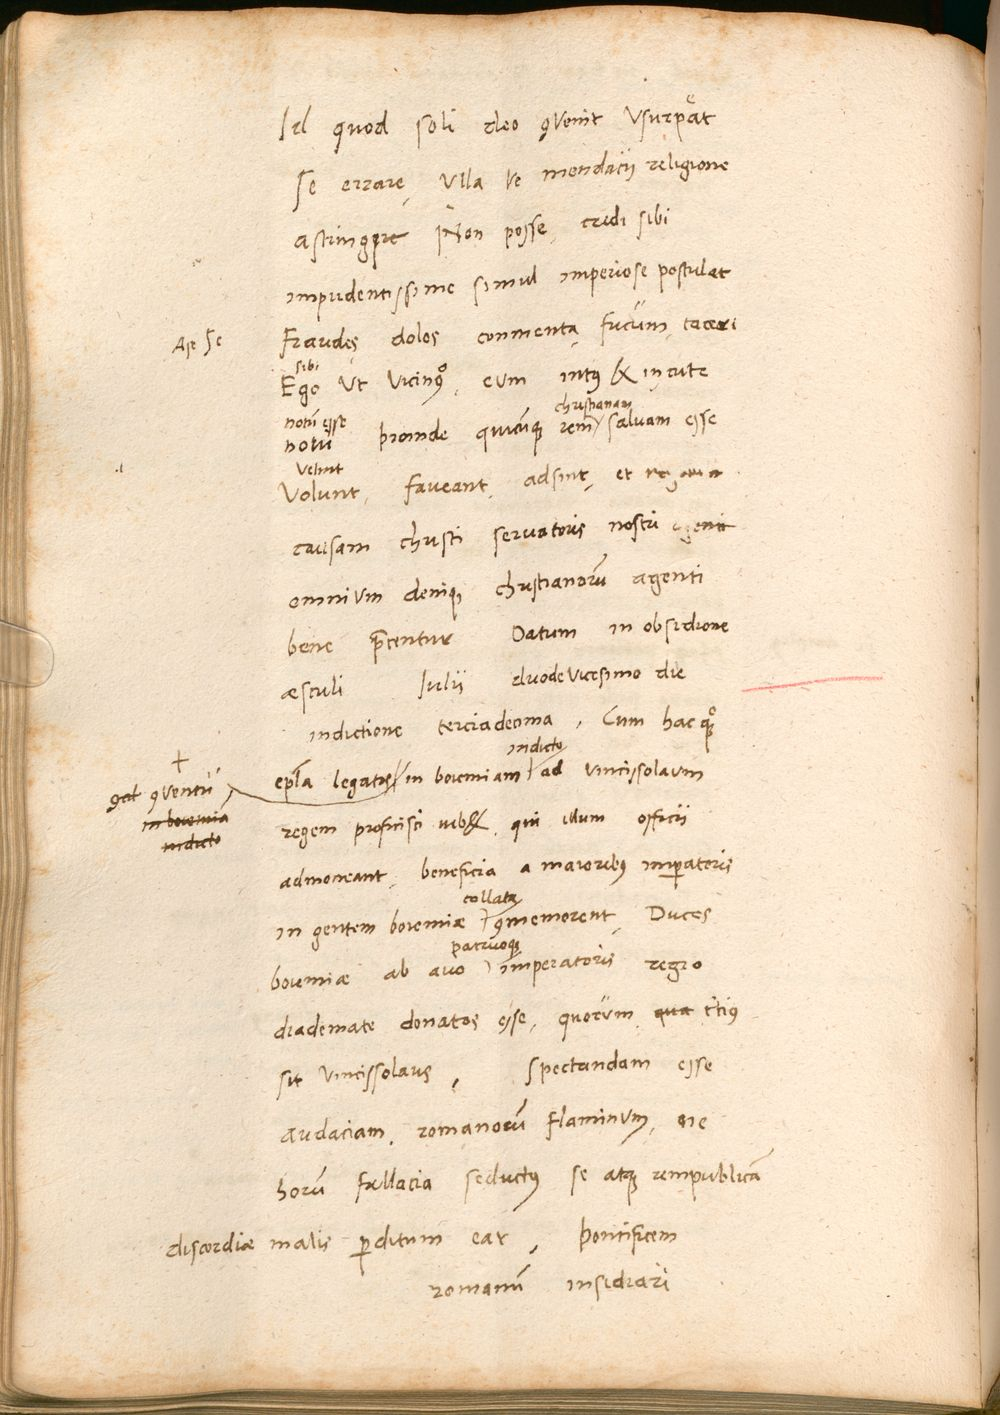 Id quod soli deo ꝯvenit Vsurpat
se errare, Vlla ve mendacii religione
astringere Non posse, credi sibi
impudentissime simul imperiose postulat
Fraudes dolos conmenta, fucum, taceri
Ape Se
sibi
Ego Ut vicinꝰ, eum intꝰ & in cute
notū esse
christianam
notū proinde quicūqꝫ rem salvam esse
velint
Volunt, faveant, adsint, et
causam christi servatoris nostri
omnium deniqꝫ christianorū agenti
bene p̄centur Datum in obsidione
æsculi Iulii duodevicesimo die
indictione terciadecima, Cum hac
indicto
ep̄la legatos in boiemiam ad vincissolaum
ꝯventū
in boiemia
indicto
regem proficisci iub&, qui illum officii
admoneant, beneficia a maioribꝰ imꝑatoris
collata
in gentem boiemiæ ꝯmemorent, Duces
patruoqꝫ
boiemiæ ab avo imperatoris regio
diademate donatos esse, quorum qua t̄tiꝰ
sit vincissolaus, Spectandam esse
audaciam, romanorū Flaminum, ne
horū fallacia seductꝰ se atqꝫ rempublicā
discordiæ malis ꝑditum eat, pontificem
romanū insidiari